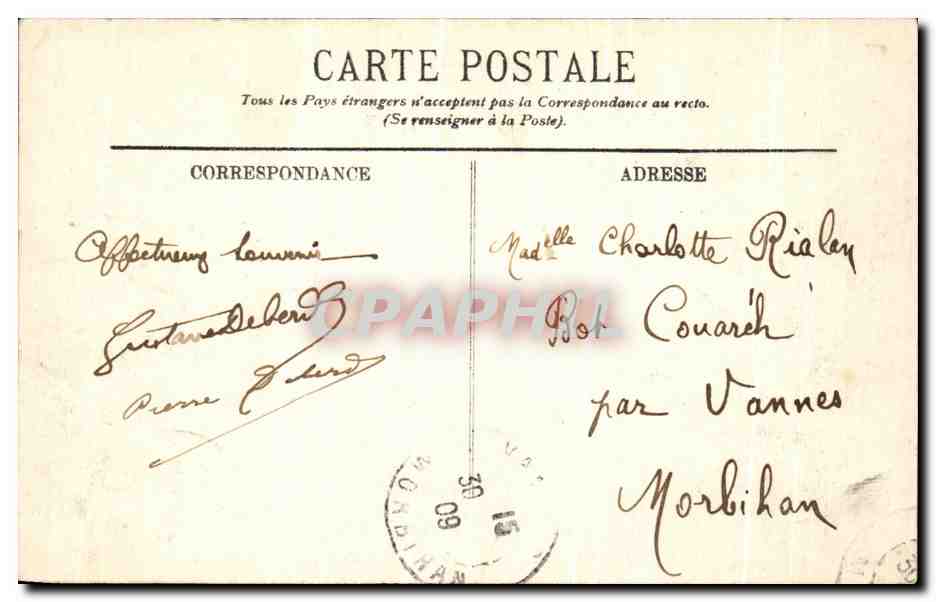 CARTE POSTALE
Tous les Pays étrangers n'acceptent pas la Correspondance au recto.
(Se renseigner à la Poste).
CORRESPONDANCE
Affectueux souvenir
Gustave Deberd
Pierre
ADRESSE
Madelle Charlotte Rialan
Bot Couarc'h
par Vannes
Morbihan
CPAPHIL
VAN
15
30
09
MORBIHAN
30